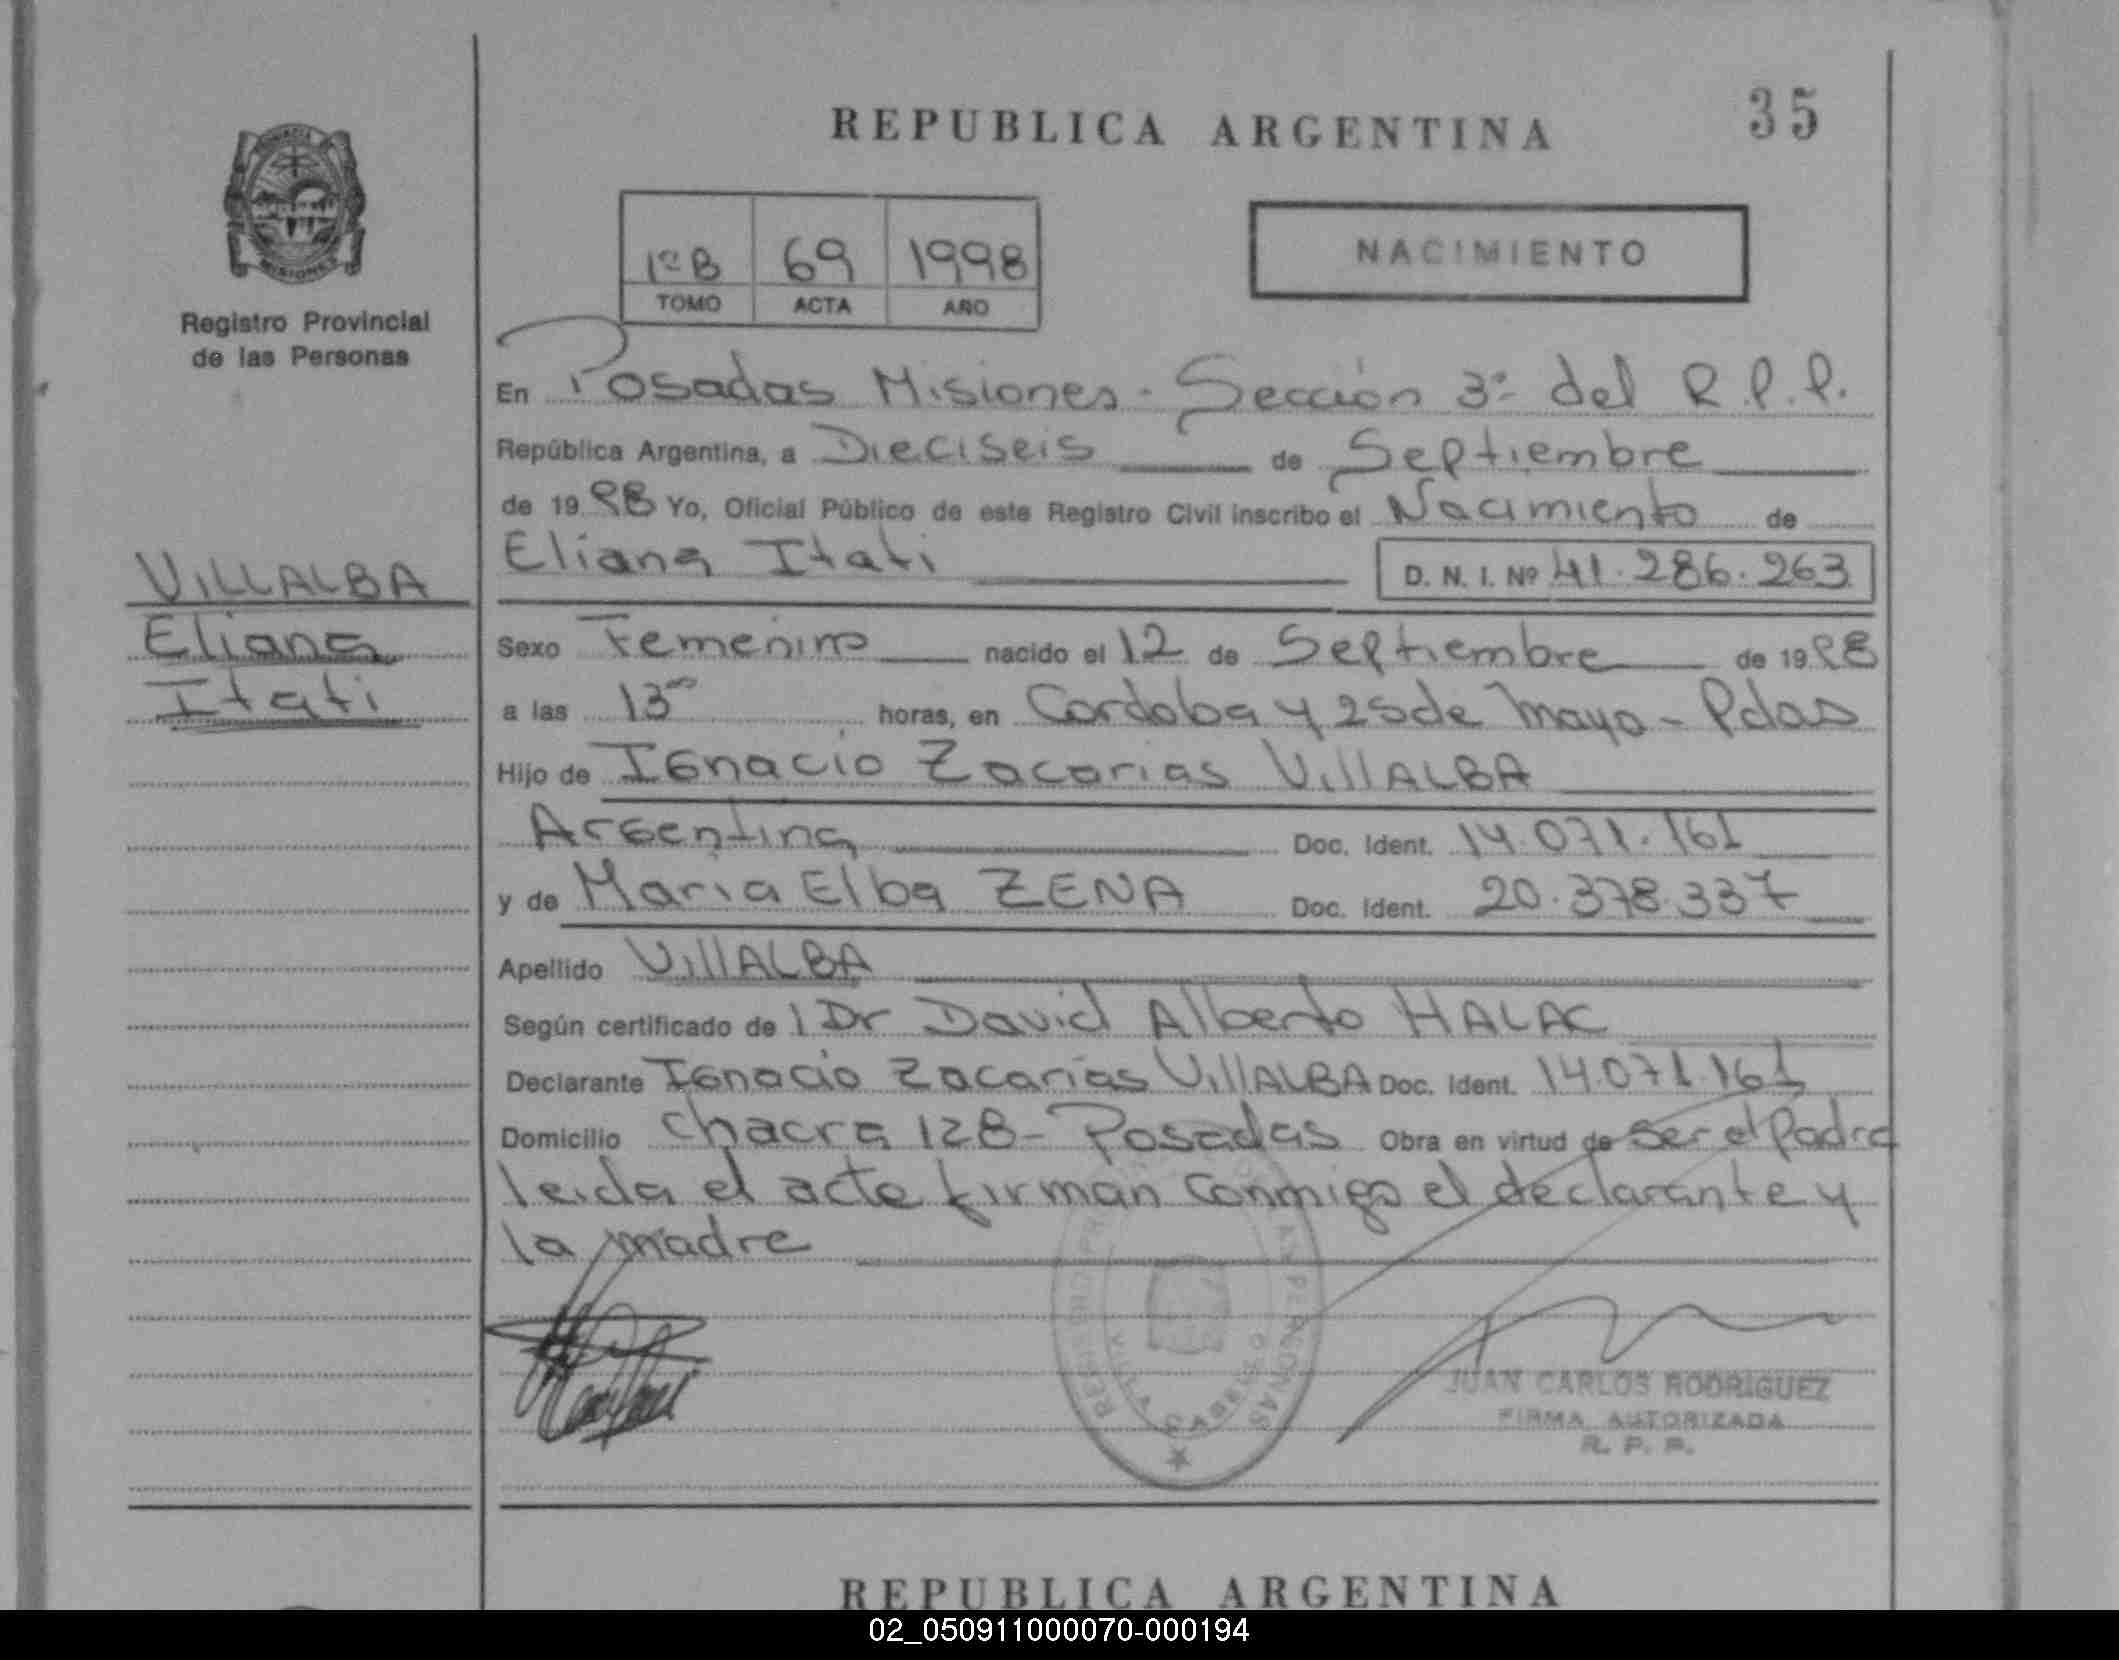 REPUBLICA ARGENTINA
35
MISIONES
Registro Provincial
de las Personas
1º B 69 1998
TOMO ACTA AÑO
NACIMIENTO
En Posadas Misiones - Sección 3º del R.P.P.
República Argentina, a Dieciseis de Septiembre
de 19 98 Yo, Oficial Público de este Registro Civil inscribo el Nacimiento de
Eliana Itati D. N. I. Nº 41.286.263
VILLALBA
Eliana
Itati
Sexo Femenino nacido el 12 de Septiembre de 19 98
a las 13 horas, en Cordoba y 25 de Mayo - Pdas
Hijo de Ignacio Zacarias VillALBA
Argentina Doc. Ident. 14.071.161
y de Maria Elba ZENA Doc. Ident. 20.378.337
Apellido VillALBA
Según certificado de l Dr David Alberto HALAC
Declarante Ignacio Zacarias VillALBA Doc. Ident. 14.071.161
Domicilio Chacra 128 - Posadas Obra en virtud de ser el Padre
leida el acta firman conmigo el declarante y
la madre
JUAN CARLOS RODRIGUEZ
FIRMA AUTORIZADA
R. P. P.
REPUBLICA ARGENTINA
02_050911000070-000194